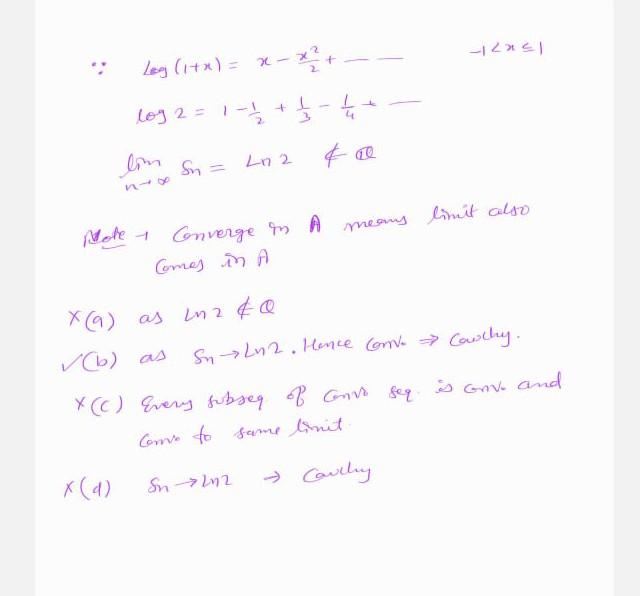 ∵ log (1+x) = x - x²/2 + — — -1 < x ≤ 1
log 2 = 1 - 1/2 + 1/3 - 1/4 + —
lim n→∞ Sn = Ln 2 ∉ ℚ
Note → Converge in A means limit also
Comes in A
×(a) as Ln 2 ∉ ℚ
✓(b) as Sn → Ln 2. Hence Conv. ⇒ Cauchy.
×(c) Every subseq of Conv seq. is conv. and
Conv to same limit.
×(d) Sn → Ln2 → Cauchy